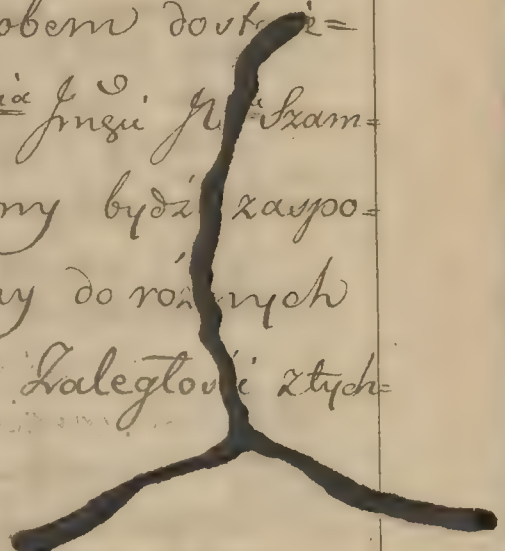 obem dosta
Imści Szam=
ny bydź zaspo=
y do różnych
Zaległości złych=